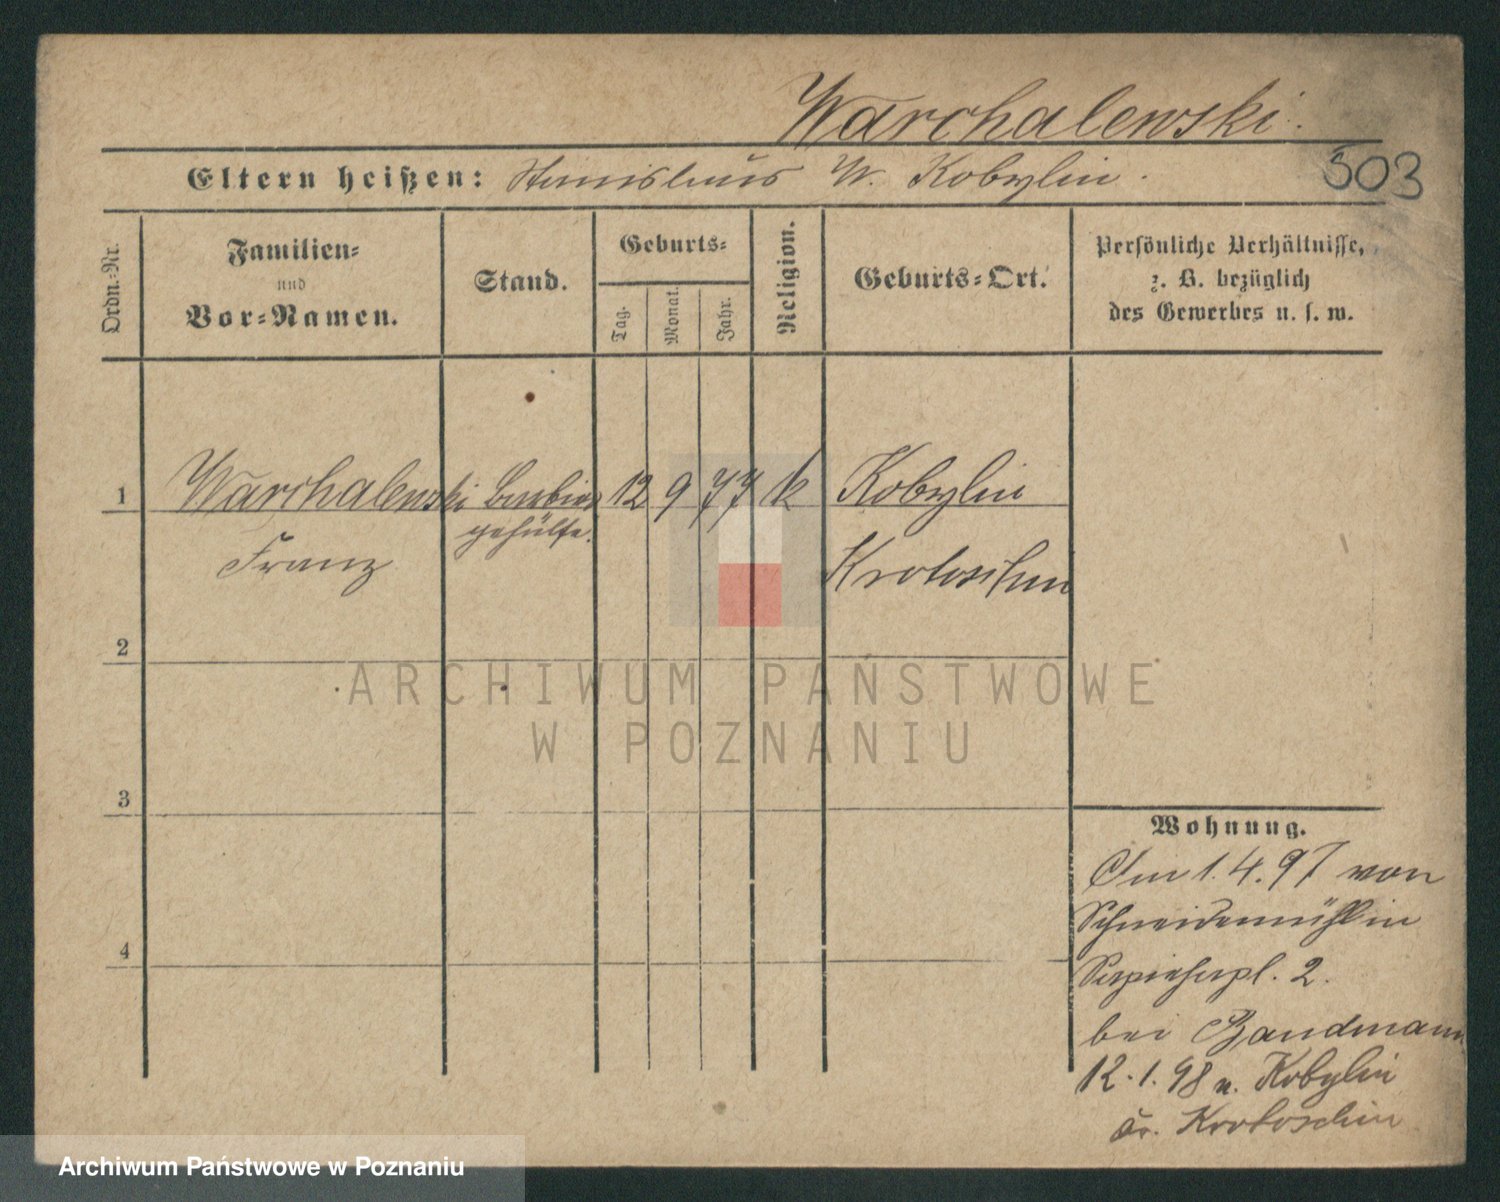 Warchalewski.
503
Eltern heißen: Stanislaus W. Kobylin.
Ordn.-Nr.
Familien-
und
Vor-Namen.
Stand.
Geburts-
Tag.
Monat.
Jahr.
Religion.
Geburts-Ort.
Persönliche Verhältnisse,
z. B. bezüglich
des Gewerbes u. s. w.
1 Warchalewski Barbier 12 9 77 k Kobylin
gehülfe.
Franz Krotoschin
2
3
4
ARCHIWUM PAŃSTWOWE
W POZNANIU
Wohnung.
Am 1.4.97 von
Schneidemühl in
Sapiehapl. 2.
bei Bandmann
12.1.98 n. Kobylin
Kr. Krotoschin
Archiwum Państwowe w Poznaniu